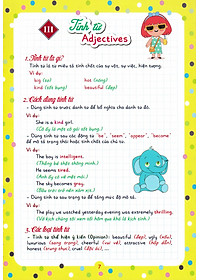 III
Tính từ
Adjectives
1. Tính từ là gì?
Tính từ là từ miêu tả tính chất của sự vật, sự việc, hiện tượng.
Ví dụ:
big (to) hot (nóng)
kind (tốt bụng) beautiful (đẹp)
2. Cách dùng tính từ
- Dùng tính từ trước danh từ để bổ nghĩa cho danh từ đó.
Ví dụ:
She is a kind girl.
(Cô ấy là một cô gái tốt bụng.)
- Dùng tính từ sau các động từ "be", "seem", "appear", "become"
để mô tả trạng thái hoặc tính chất của chủ từ.
Ví dụ:
The boy is intelligent.
(Thằng bé thật thông minh.)
He seems tired.
(Anh ấy có vẻ mệt mỏi.)
The sky becomes gray.
(Bầu trời trở nên xám xịt.)
- Dùng tính từ sau trạng từ để tăng mức độ mô tả.
Ví dụ:
The play we watched yesterday evening was extremely thrilling.
(Vở kịch chúng tôi xem tối qua khá là kịch tính.)
3. Các loại tính từ
- Tính từ thể hiện ý kiến (Opinion): beautiful (đẹp), ugly (xấu),
luxurious (sang trọng), cheerful (vui vẻ), attractive (hấp dẫn),
honest (trung thực), cruel (độc ác)...